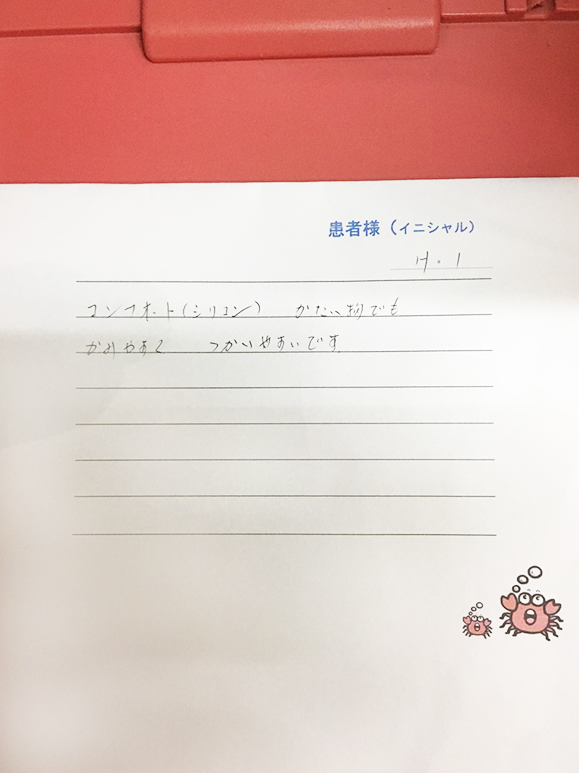 患者様（イニシャル）
H．I
コンフォート（シリコン）　かたい物でも
かみやすく　つかいやすいです